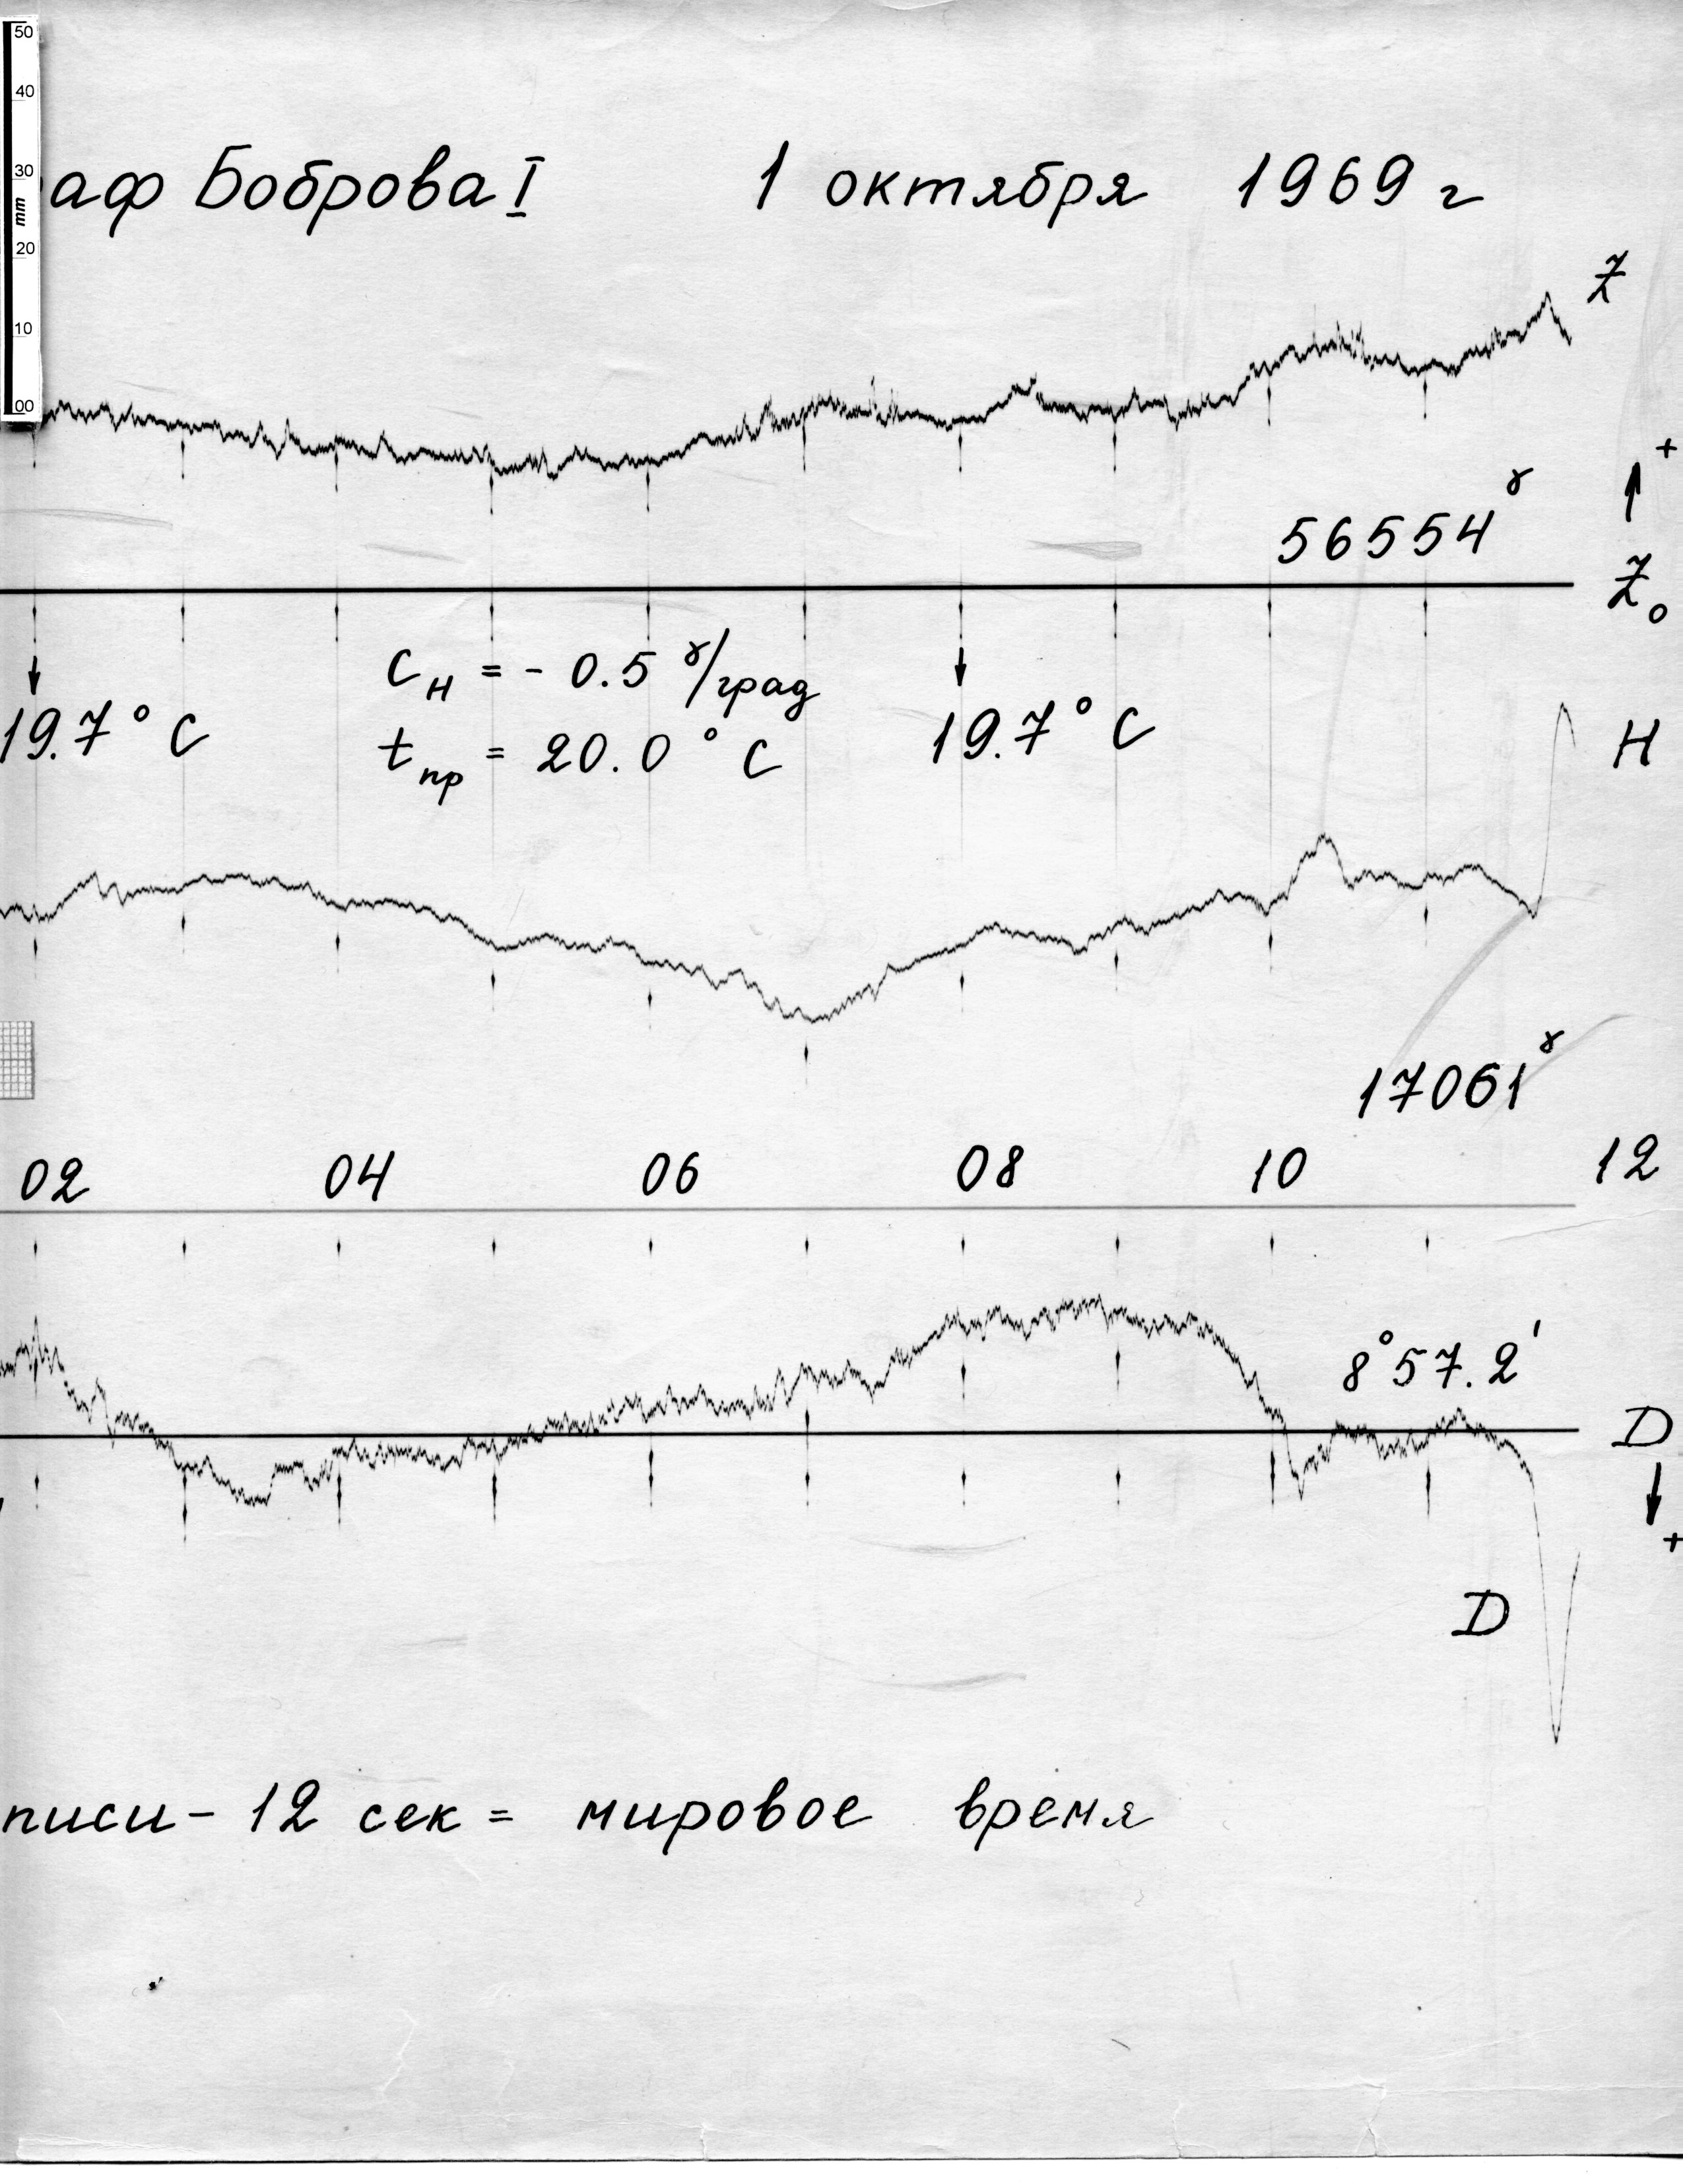 50
40
30
mm
20
10
00
аф Боброва I 1 октября 1969 г
Z
+
56554 ɣ
Z₀
C_H = - 0.5 ɣ/град
19.7° C
t_пр = 20.0° C
19.7° C
H
17061 ɣ
02 04 06 08 10 12
8° 57.2'
D
+
D
писи - 12 сек = мировое время